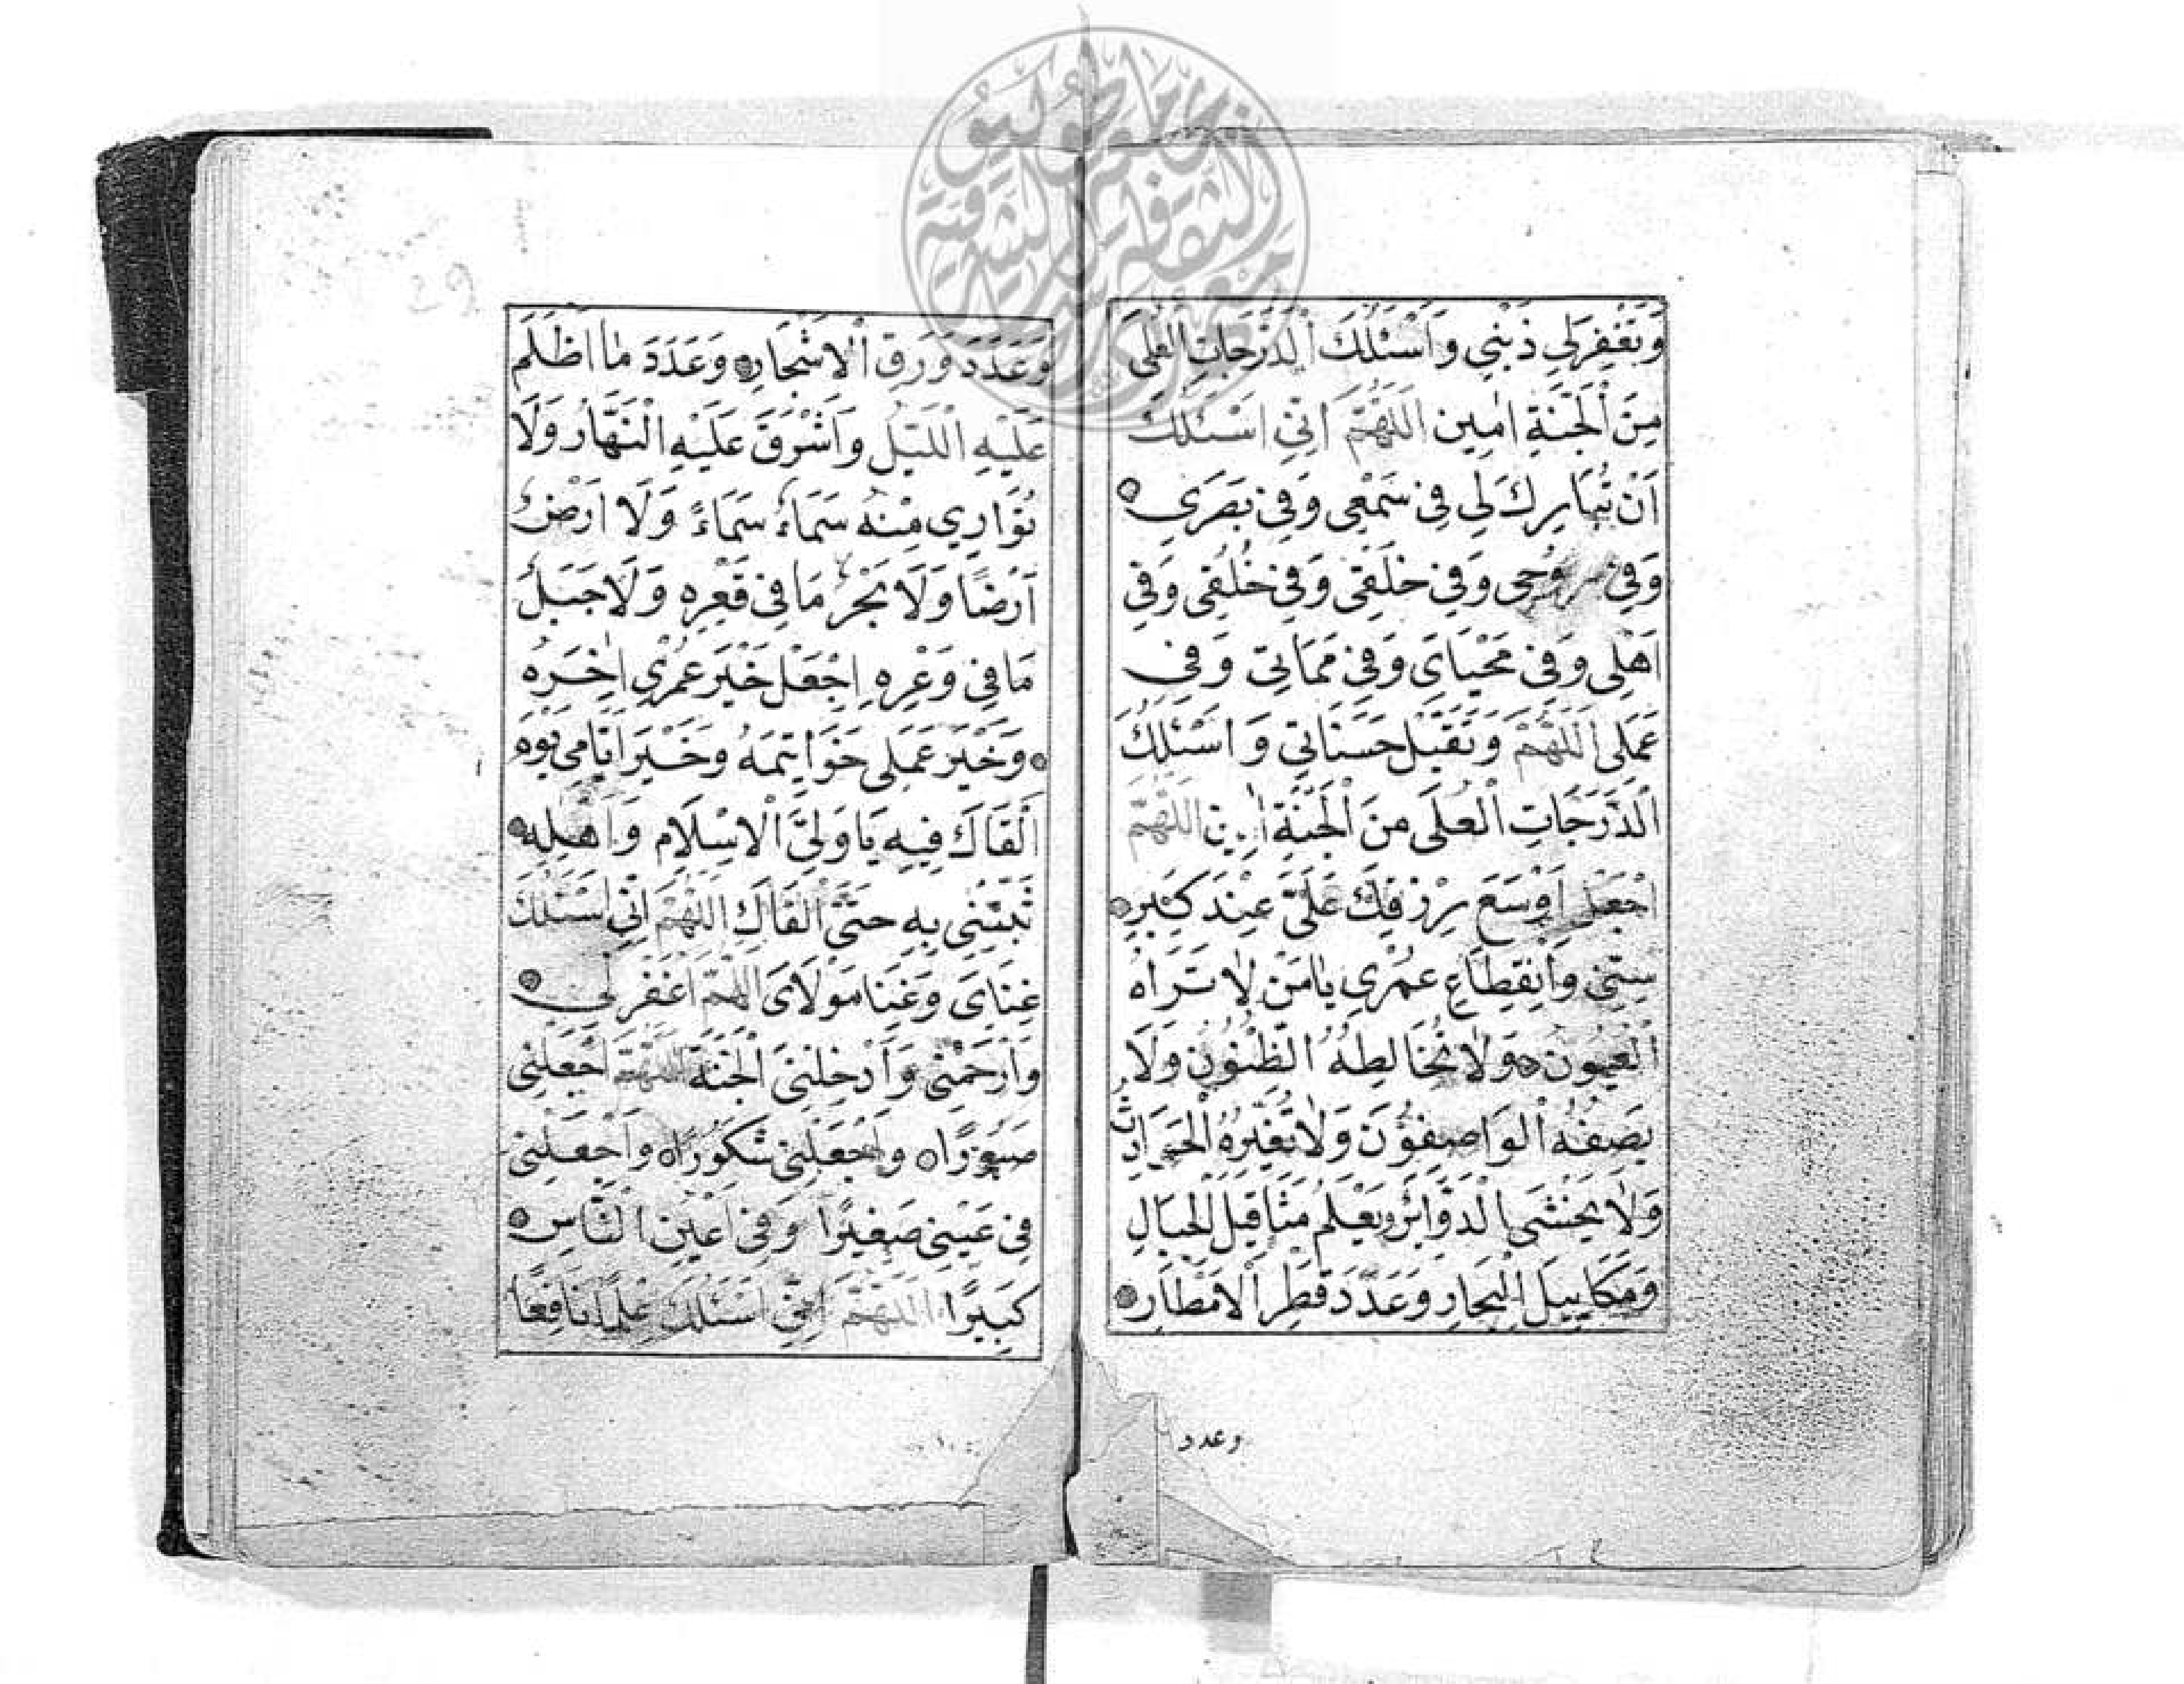 وَتَغْفِرَلِي ذَنْبِي وَاَسْئَلُكَ الْدَّرَجَاتِ الْعُلَى
مِنَ الْجَنَّةِ اٰمِين اَللّٰهُمَّ اِنِّي اَسْئَلُكَ
اَنْ تُبَارِكَ لِي فِي سَمْعِي وَفِي بَصَرَي
وَفِي رُوُحِي وَفِي خَلْقِي وَفِي خُلُقِي وَفِي
اَهْلِي وَفِي مَحْيَايَ وَفِي مَمَاتِي وَفِي
عَمَلِي اَللّٰهُمَّ وَتَقَبَّلْ حَسَنَاتِي وَاَسْئَلُكَ
الْدَّرَجَاتِ الْعُلَى مِنَ الْجَنَّةِ اٰمِين اَللّٰهُمَّ
اجْعَلْ اَوْسَعَ رِزْقِكَ عَلَيَّ عِنْدَ كِبَرِ
سِنِّي وَانْقِطَاعِ عُمْرِي يَامَنْ لَا تَرَاهُ
الْعُيُوُن وَلَا تُخَالِطُهُ الظُّنُوُن وَلَا
يَصِفُهُ الْوَاصِفُوُنَ وَلَا تُغَيِّرُهُ الْحَوَادِثُ
وَلَا يَخْشَى الْدَّوَائِرَ وَيَعْلَمُ مَثَاقِيلَ الْجِبَالِ
وَمَكَايِيلَ الْبِحَارِ وَعَدَدَ قَطْرِ الْاَمْطَارِ
وعدد
وَعَدَدَ وَرَقِ الْاَشْجَارِ وَعَدَدَ مَا اَظْلَمَ
عَلَيْهِ اللَّيْلُ وَاَشْرَقَ عَلَيْهِ النَّهَارُ وَلَا
تُوَارِي مِنْهُ سَمَاءٌ سَمَاءً وَلَا اَرْضٌ
اَرْضًا وَلَا بَحْرٌ مَا فِي قَعْرِهِ وَلَا جَبَلٌ
مَا فِي وَعْرِهِ اِجْعَلْ خَيْرَ عُمْرِي اٰخِرَهُ
وَخَيْرَ عَمَلِي خَوَاتِمَهُ وَخَيْرَ اَيَّامِي يَوْمَ
اَلْقَاكَ فِيهِ يَا وَلِيَّ الْاِسْلَامِ وَاَهْلِهِ
ثَبِّتْنِي بِهِ حَتَّى اَلْقَاكَ اَللّٰهُمَّ اِنِّي اَسْئَلُكَ
غِنَايَ وَغِنَا مَوْلَايَ اَللّٰهُمَّ اغْفِرْلِي
وَارْحَمْنِي وَاَدْخِلْنِيَ الْجَنَّةَ اَللّٰهُمَّ اجْعَلْنِي
صَبُوُرًا وَاجْعَلْنِي شَكُوُرًا وَاجْعَلْنِي
فِي عَيْنِي صَغِيْرًا وَفِي اَعْيُنِ النَّاسِ
كَبِيرًا اَللّٰهُمَّ اِنِّي اَسْئَلُكَ عِلْمًا نَافِعًا